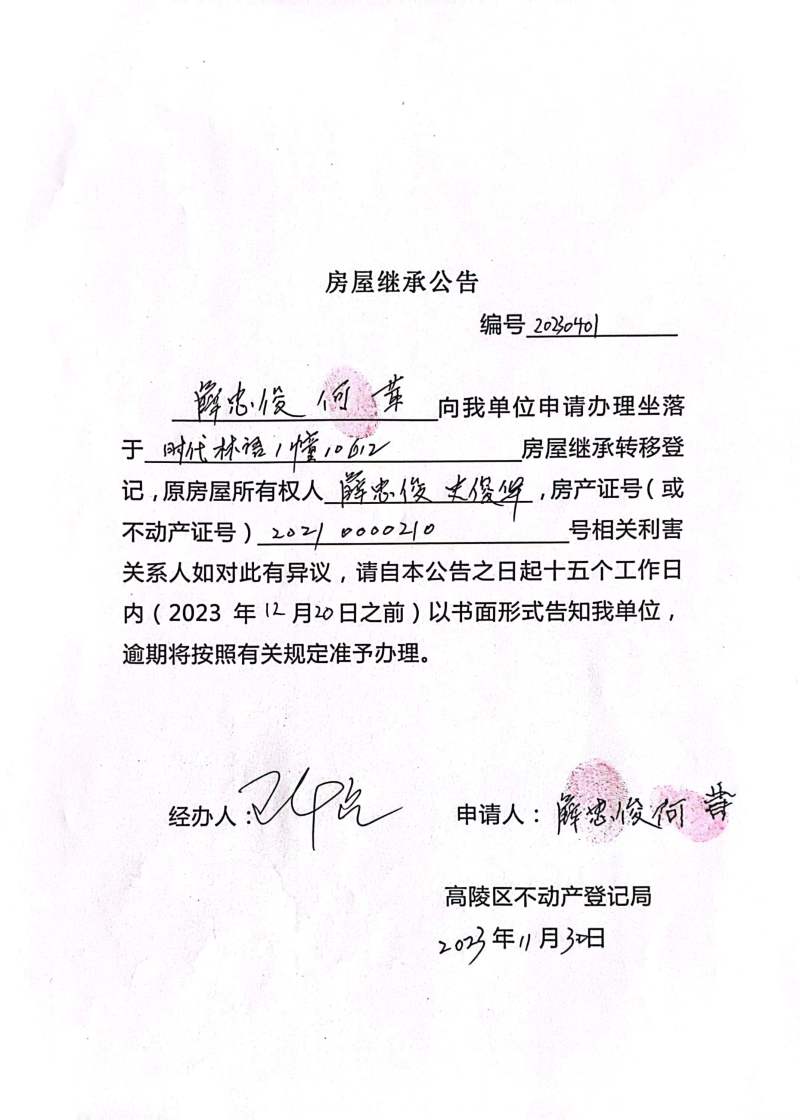 房屋继承公告
编号 20230401
薛忠俊 何 向我单位申请办理坐落
于 时代林语1幢10612 房屋继承转移登
记，原房屋所有权人 薛忠俊 史俊华，房产证号（或
不动产证号）20210000210 号相关利害
关系人如对此有异议，请自本公告之日起十五个工作日
内（2023 年12月20日之前）以书面形式告知我单位，
逾期将按照有关规定准予办理。
经办人： 申请人：薛忠俊何
高陵区不动产登记局
2023年11月30日